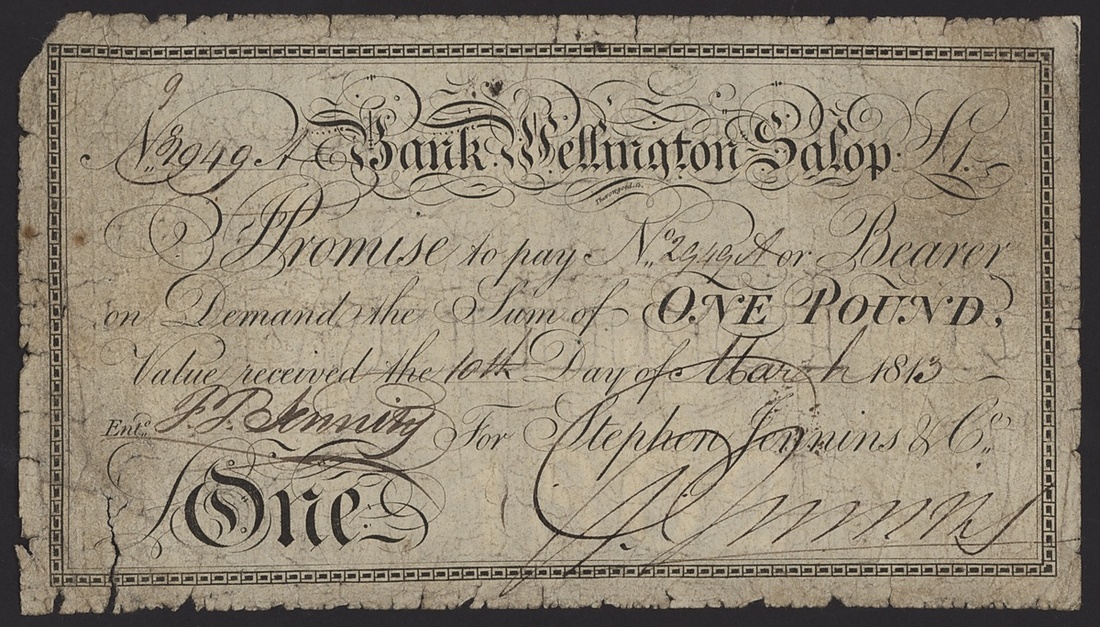 9
No 2949 A Bank Wellington Salop £1
I Promise to pay No 2949 A or Bearer
on Demand the Sum of ONE POUND,
Value received the 10th Day of March 1813
Entd. For Stephen Jenkins & Co.
One